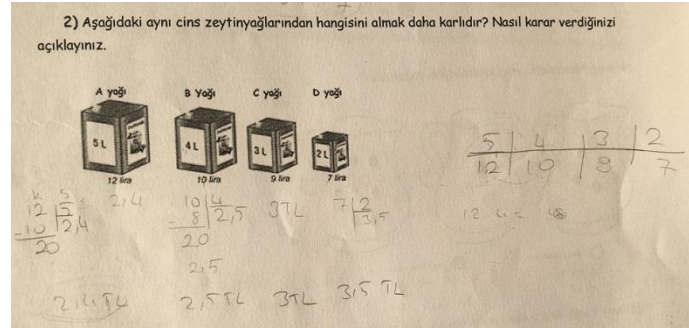 2) Aşağıdaki aynı cins zeytinyağlarından hangisini almak daha karlıdır? Nasıl karar verdiğinizi
açıklayınız.
A yağı B Yağı C yağı D yağı
5 L 4 L 3 L 2 L
12 lira 10 lira 9 lira 7 lira
5 4 3 2
12 10 9 7
12 5 2,4 10 4 3TL 7 2
-10 2,4 - 8 2,5 3,5
20 20
2,5
12 4 = 48
2,4 TL 2,5 TL 3TL 3,5 TL